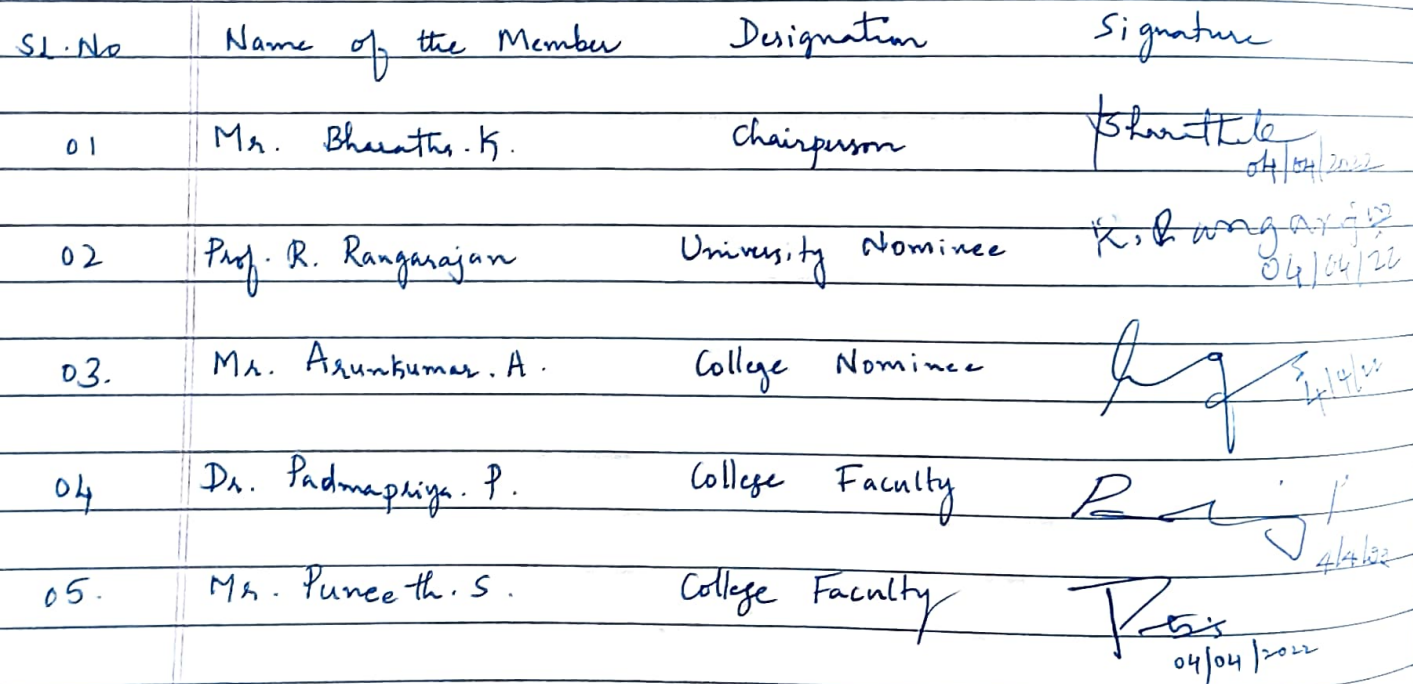 SL.No Name of the Member Designation Signature
01 Mr. Bharatha.K. Chairperson
04/04/2022
02 Prof. R. Rangarajan University Nominee K. Rangarajan
04/04/22
03. Mr. Arunkumar. A. College Nominee
4/4/22
04 Dr. Padmapriya. P. College Faculty
4/4/22
05. Mr. Puneeth. S. College Faculty
04/04/2022